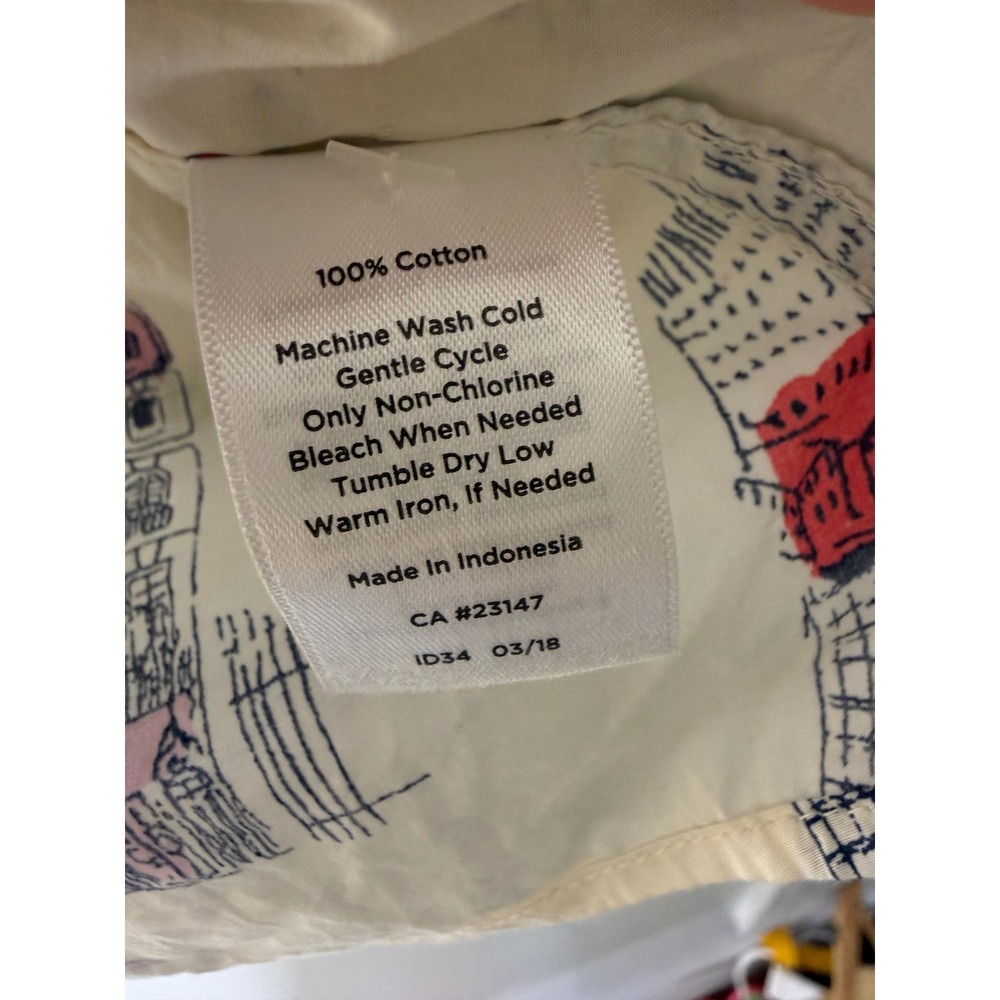 100% Cotton
Machine Wash Cold
Gentle Cycle
Only Non-Chlorine
Bleach When Needed
Tumble Dry Low
Warm Iron, If Needed
Made In Indonesia
CA #23147
ID34 03/18